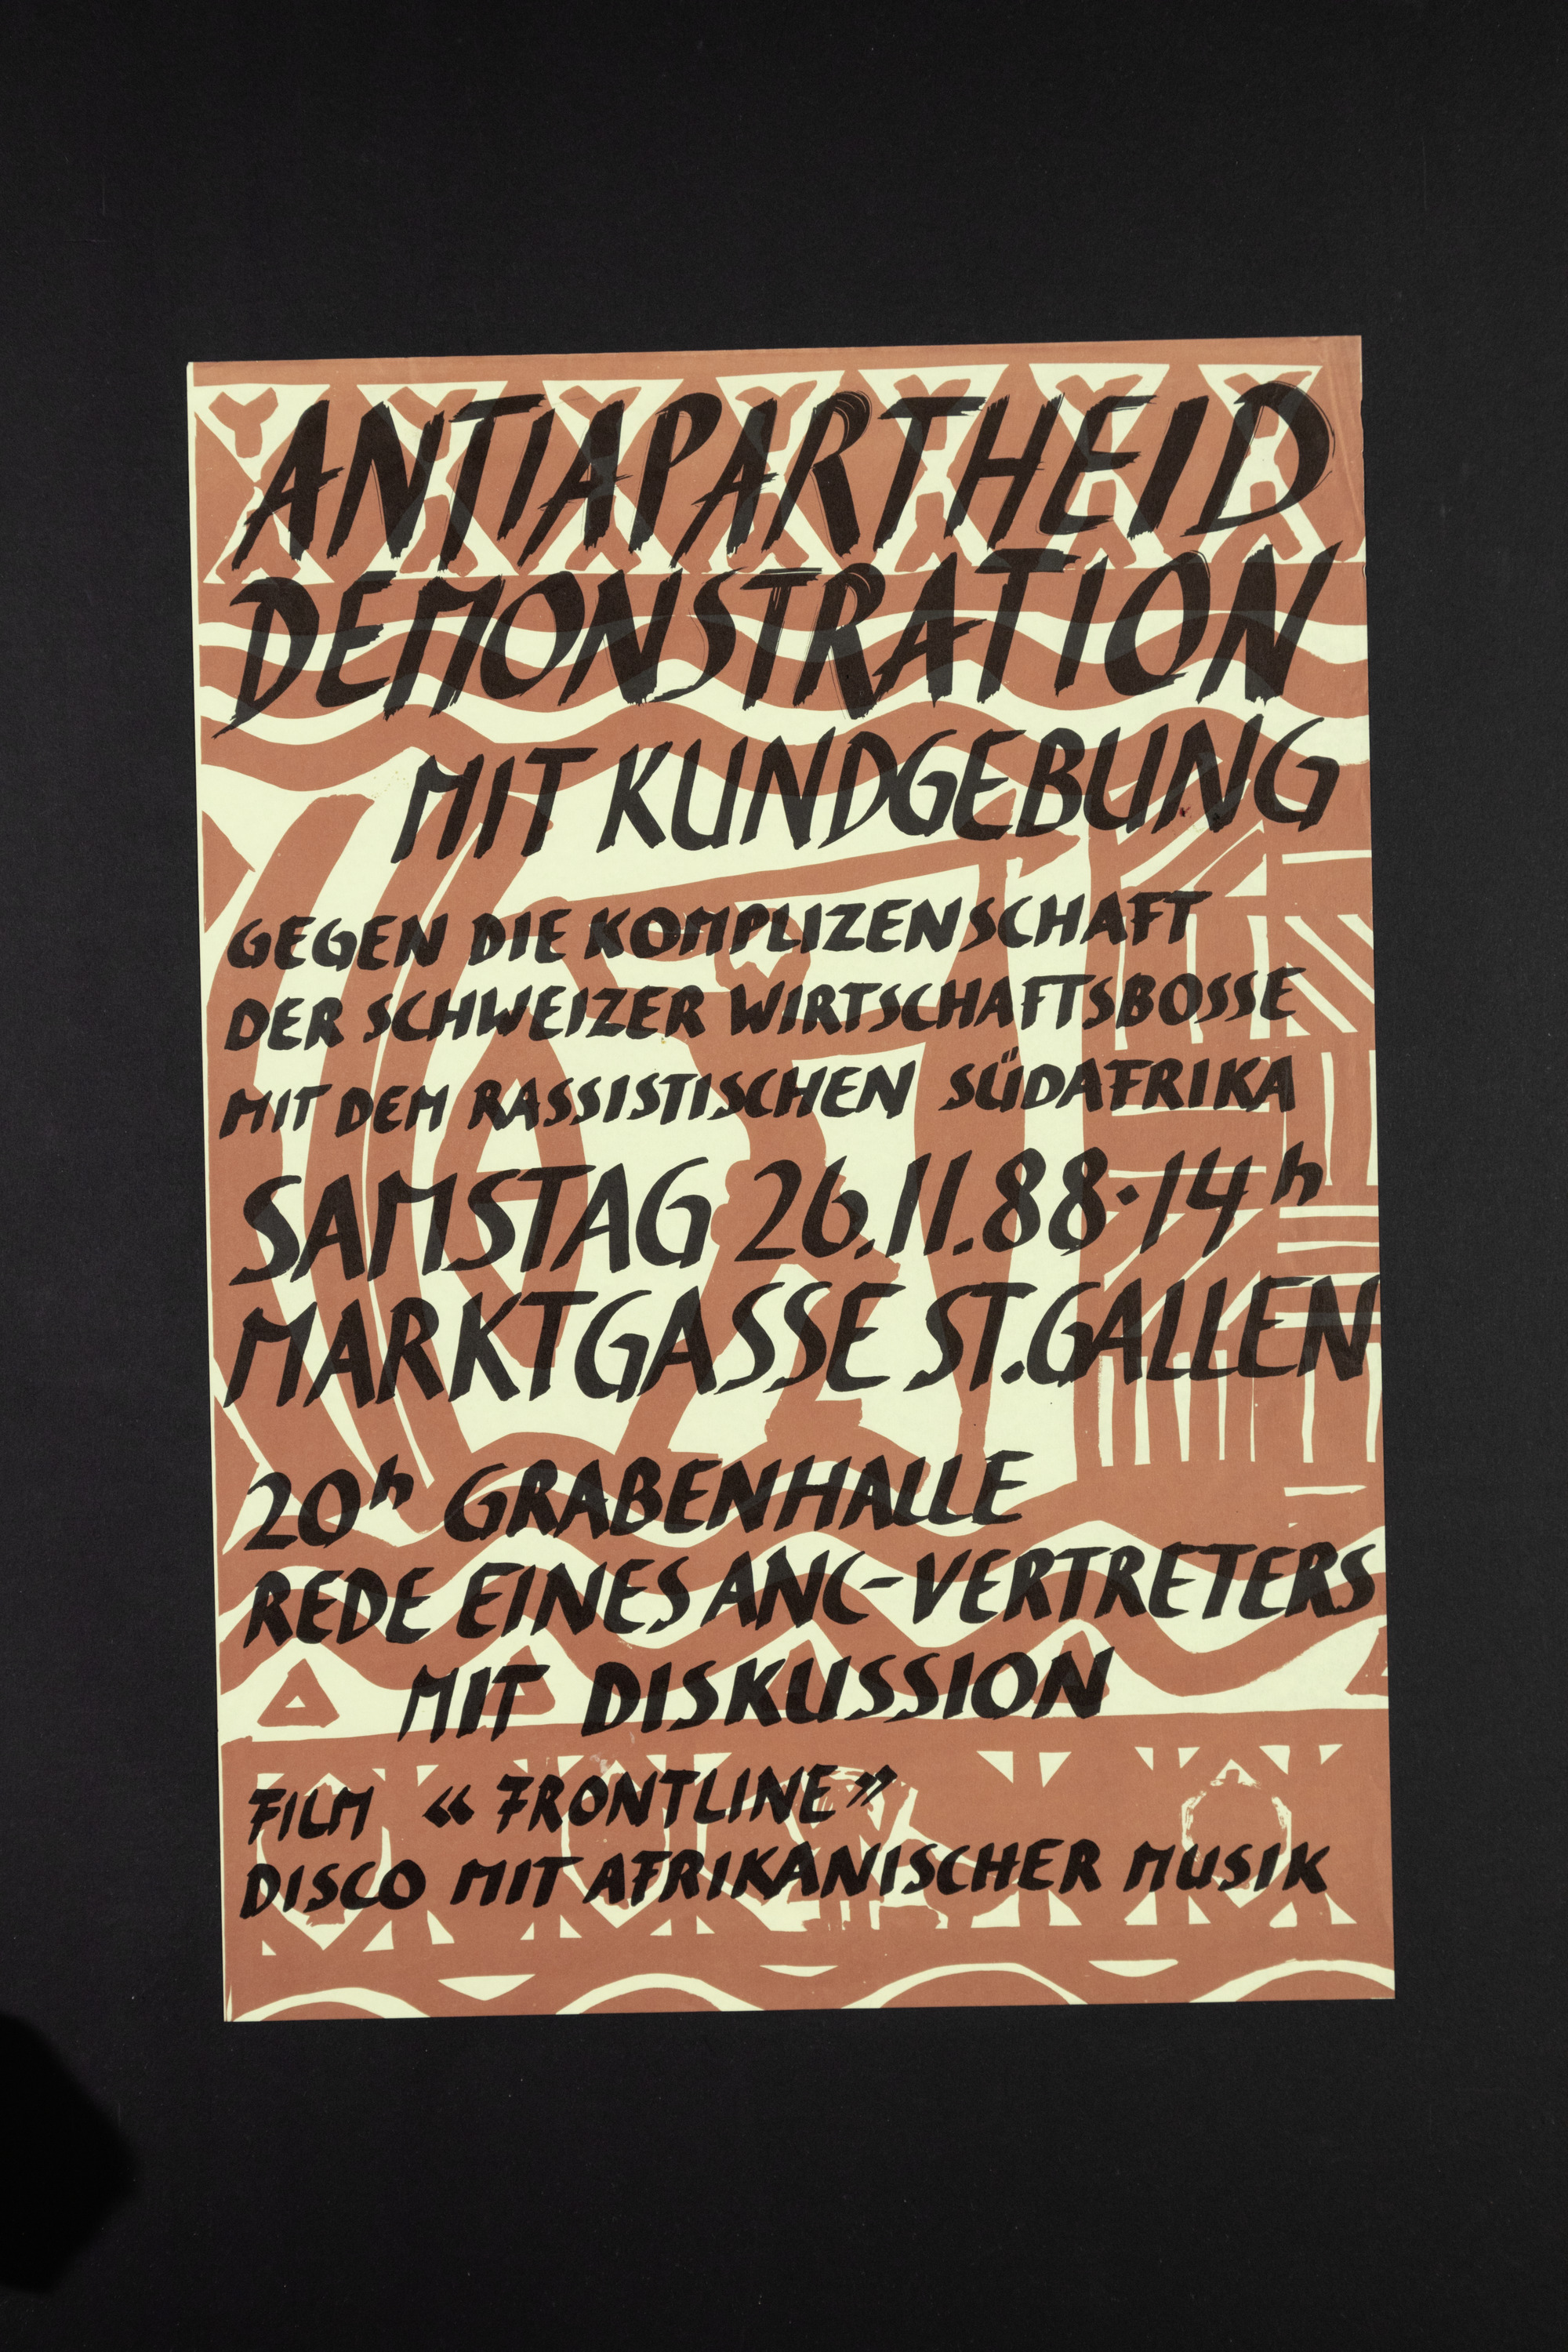 ANTIAPARTHEID
DEMONSTRATION
MIT KUNDGEBUNG
GEGEN DIE KOMPLIZENSCHAFT
DER SCHWEIZER WIRTSCHAFTSBOSSE
MIT DEM RASSISTISCHEN SÜDAFRIKA
SAMSTAG 26.11.88·14h
MARKTGASSE ST.GALLEN
20h GRABENHALLE
REDE EINES ANC-VERTRETERS
MIT DISKUSSION
FILM «FRONTLINE»
DISCO MIT AFRIKANISCHER MUSIK